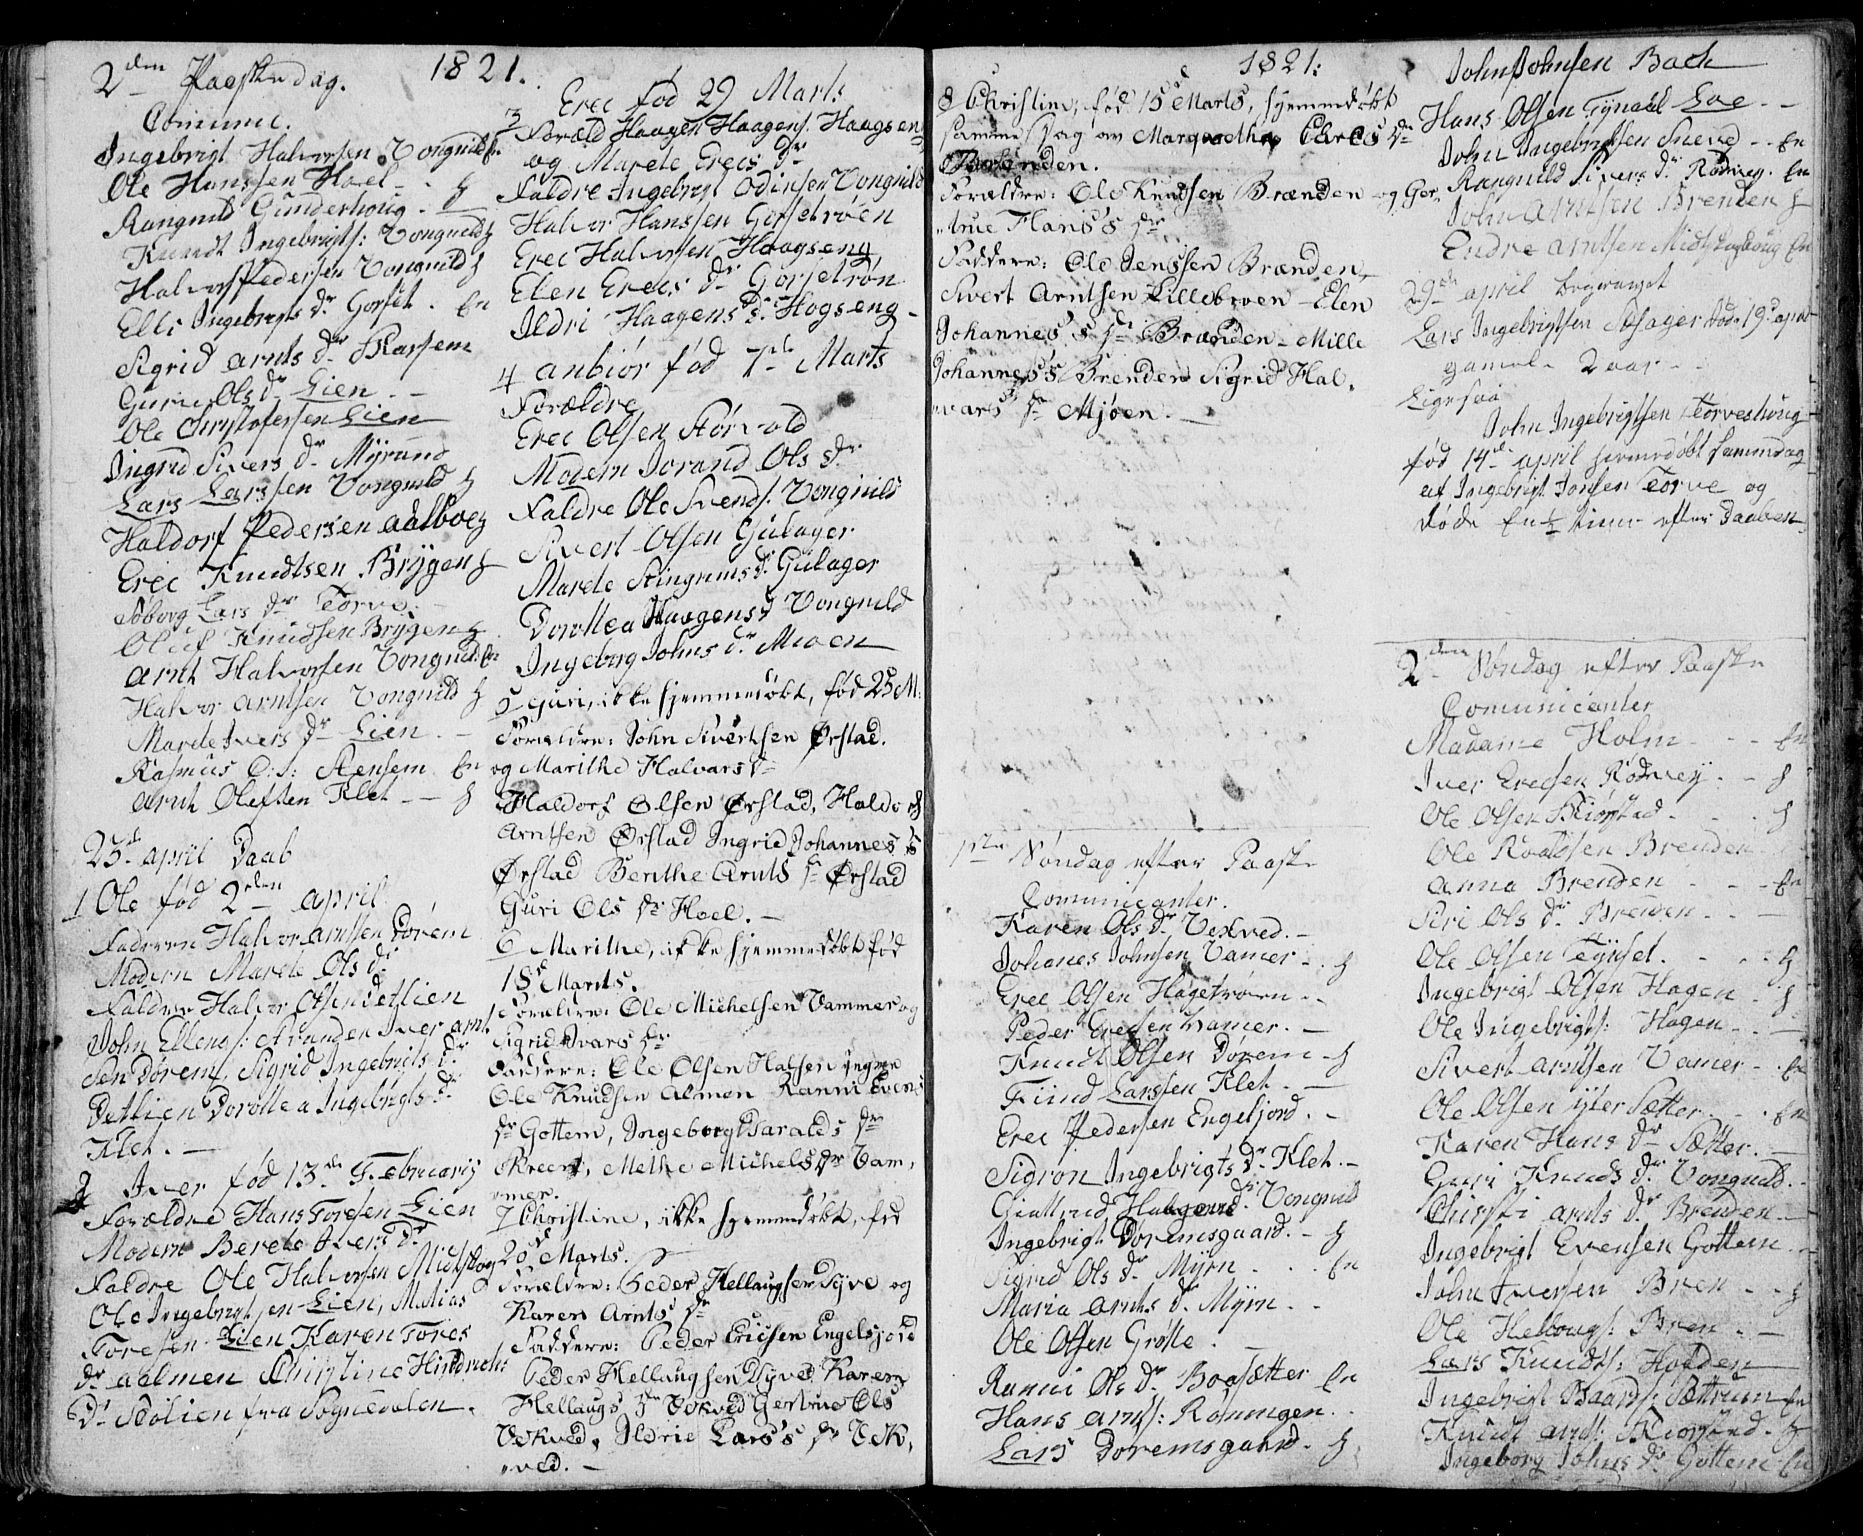 1821.
2den Paaskedag.
Commu.
Ingebrigt Halvorsen Vongnild En
Ole Hanssen Hoel - - h
Rangnild Gunderhoug. -
Knudt Ingebrigts: Vongnild h
Halvor Pedersen Vongnild h
Elli Ingebrigts dr Gorset. En
Sigrid Arnts dr
Guru Ols dr Lien - -
Ole Christofersen Lien
Ingrid Sivers dr Myrund
Lars Larssen Vongnild h
Haldorf Pedersen Aalboe h
Erec Knudtsen Brygen h
Lars dr Torve. -
Oluf Knudsen Brygen h
Arnt Halvorsen Vongnild En
Halvor Arntsen Vongnild h
Marete Ivers dr Lien. -
Rasmus Stensem En
Arnt Olefsen Klet - - h
23d April Daab
1 Ole fød 2den April
Faderen Halvor Arntsen Dørem
Modern Marete Ols dr
Faldre Halvor Olsen Detlien
John Ellens: Stranden Iver Arnt
sen Dørem, Sigrid Ingebrigts dr
Detlien Dorottea Ingebrigts dr
Klet. -
2 Iver fød 13de Februarij
Forældre Hans Toresen Lien
Modern Berete Ivers dr
Faldre Ole Halvorsen Midtskog
Ole Ingebrigtsen Lien, Matias
Toresen Lien Karen Tores
dr Aalmen Christine Hindrich:
Dr Stolien fra Sognedalen.
3 Erec fød 29 Marts
Foræld Haagen Haagens. Haagseng
og Marete Erecs dr
Faldre Ingebrigt Odinsen Vongnild
Halvor Hanssen Gorsetrøen
Erec Halvorsen Haagseng
Elen Erecs dr Gorsetrøn
Ildri Haagens dr Hogseng -
4 Anbior fød 7de Marts
Forældre
Erec Olsen Storvold
Modern Jorand Ols dr
Faldre Ole Svends. Vongnild
Sivert Olsen Gulager
Marete Stingrims dr Gulager
Dorottea Haagens dr Vongnild
Ingeborg Johns dr Mioen
5 Guri, ikke hjemmedøbt, fød 25 M:
Forældre: John Sivertsen Ørstad.
og Marithe Halvars dr
Haldorf Olsen Ørstad, Haldorf
Arntsen Ørstad Ingrid Johannes's
Ørstad Berithe Arnts dr Ørstad
Guri Ols dr Hoel. -
6 Marithe, ikke hjemmedøbt fød
18d Marts.
Forældre: Ole Michelsen Vammer og
Sigrid Ivars dr
Faddere: Ole Olsen Halsen yngre
Ole Knudsen Almen Ranni Evens
dr Gottem, Ingeborg Haralds dr
Kreen, Methe Michels dr Vam,
mer.
7 Christine, ikke hjemmedøbt, fød
20d Marts.
Forældre: Peder Hellaugsen Dyve og
Karen Arnts dr
Faddere: Peder Ericsen Engelsjord
Peder Hellaugsen Dyve, Karen
Hellaugs dr Vekved Gertrue Ols
Vekved, Ildrie Lars's dr Vek,
ved. -
1821:
8 Christine, fød 15d Marts, hjemmedøbt
samme Dag av Margrethe Larss dr
Brænden.
Forældre: Ole Knudsen Brænden og Ger,
true Hans's dr
Faddere: Ole Jenssen Brænden,
Sivert Arntsen Lillebroen - Elen
Johannes's dr Brænden - Mille
Johannes's Brenden Sigrid Hal,
vars dr Mjøen. -
1ste Søndag efter Paaske
Communicanter.
Karen Ols dr Vekved. -
Johanes Johnsen Vamer - . h
Erec Olsen Hagetrøen - -
Peder Erecsen Vamer. -
Knudt Olsen Dørem - h
Fiind Larssen Klet. -
Erec Pedersen Engelsjord. -
Sigron Ingebrigts dr Klet. -
Giertrud Haagens dr Vongnild
Ingebrigt Doremsgaard. - h
Sigrid Ols dr Myrn . . . En
Maria Arnts dr Myrn. - -
Ole Olsen Grøtte . -
Ranni Ols dr Boasetter En
Hans Arnts: Roningen. .
Lars Doremsgaard. h
John Johnsen Bach
Hans Olsen Tynæl Loe - -
John Ingebrigtsen Sneve - . En
Rangnild Sivers dr Rodvey. En
John Arntsen Brenden h
Endre Arntsen Midtskoug En
29de April begravet
Lars Ingebrigtsen Solager døde 19d April
gamel - 2 aar - -
Ligesaa
John Ingebrigtsen Torveshoug
fød 14de April hiemedøbt sammedag
af Ingebrigt Jonsen Torve og
døde En ½ time efter Daaben
2den Søndag efter Paaske
Comunicanter
Madame Holm - - - En
Iver Erecsen Rodvey. - h
Ole Olsen Kiorstad . . . h
Ole Roaldsen Brenden
Anna Brenden - - - En
Siri Ols dr Brenden. . -
Ole Olsen Tynset. . - - h
Ingebrigt Olsen Hagen . h
Ole Ingebrigts: Hagen - . -
Sivert Arntsen Vamer - . En
Ole Olsen yter Sætter. - . En
Karen Hans dr Sætter. -
Guri Knuds dr Vongnild. -
Chirsti Arnts dr Brenden. -
Ingebrigt Evensen Gottem. -
John Iversen Bren . - h
Ole Hellougs: Bren . -
Lars Knudts: Holden
Ingebrigt Baards: Sættrum En
Knudt Arnts: Kiosund. h
Ingeborg Johns dr Gottem En